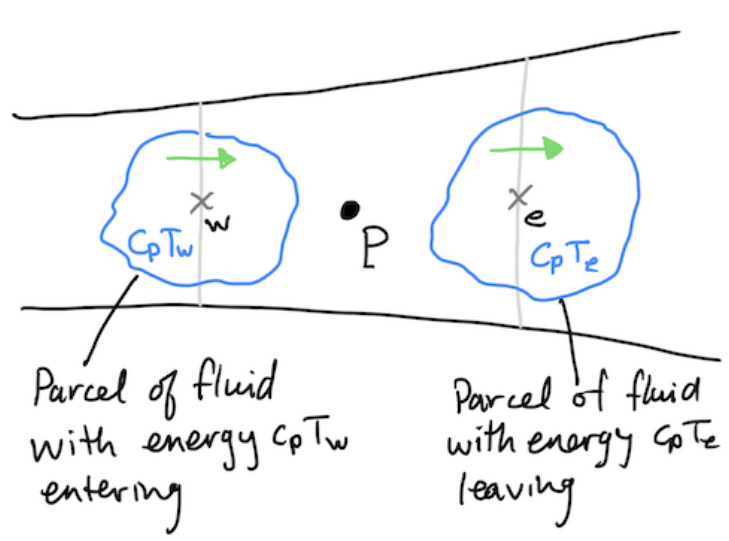 w
CpTw
P
e
CpTe
Parcel of fluid
with energy CpTw
entering
Parcel of fluid
with energy CpTe
leaving